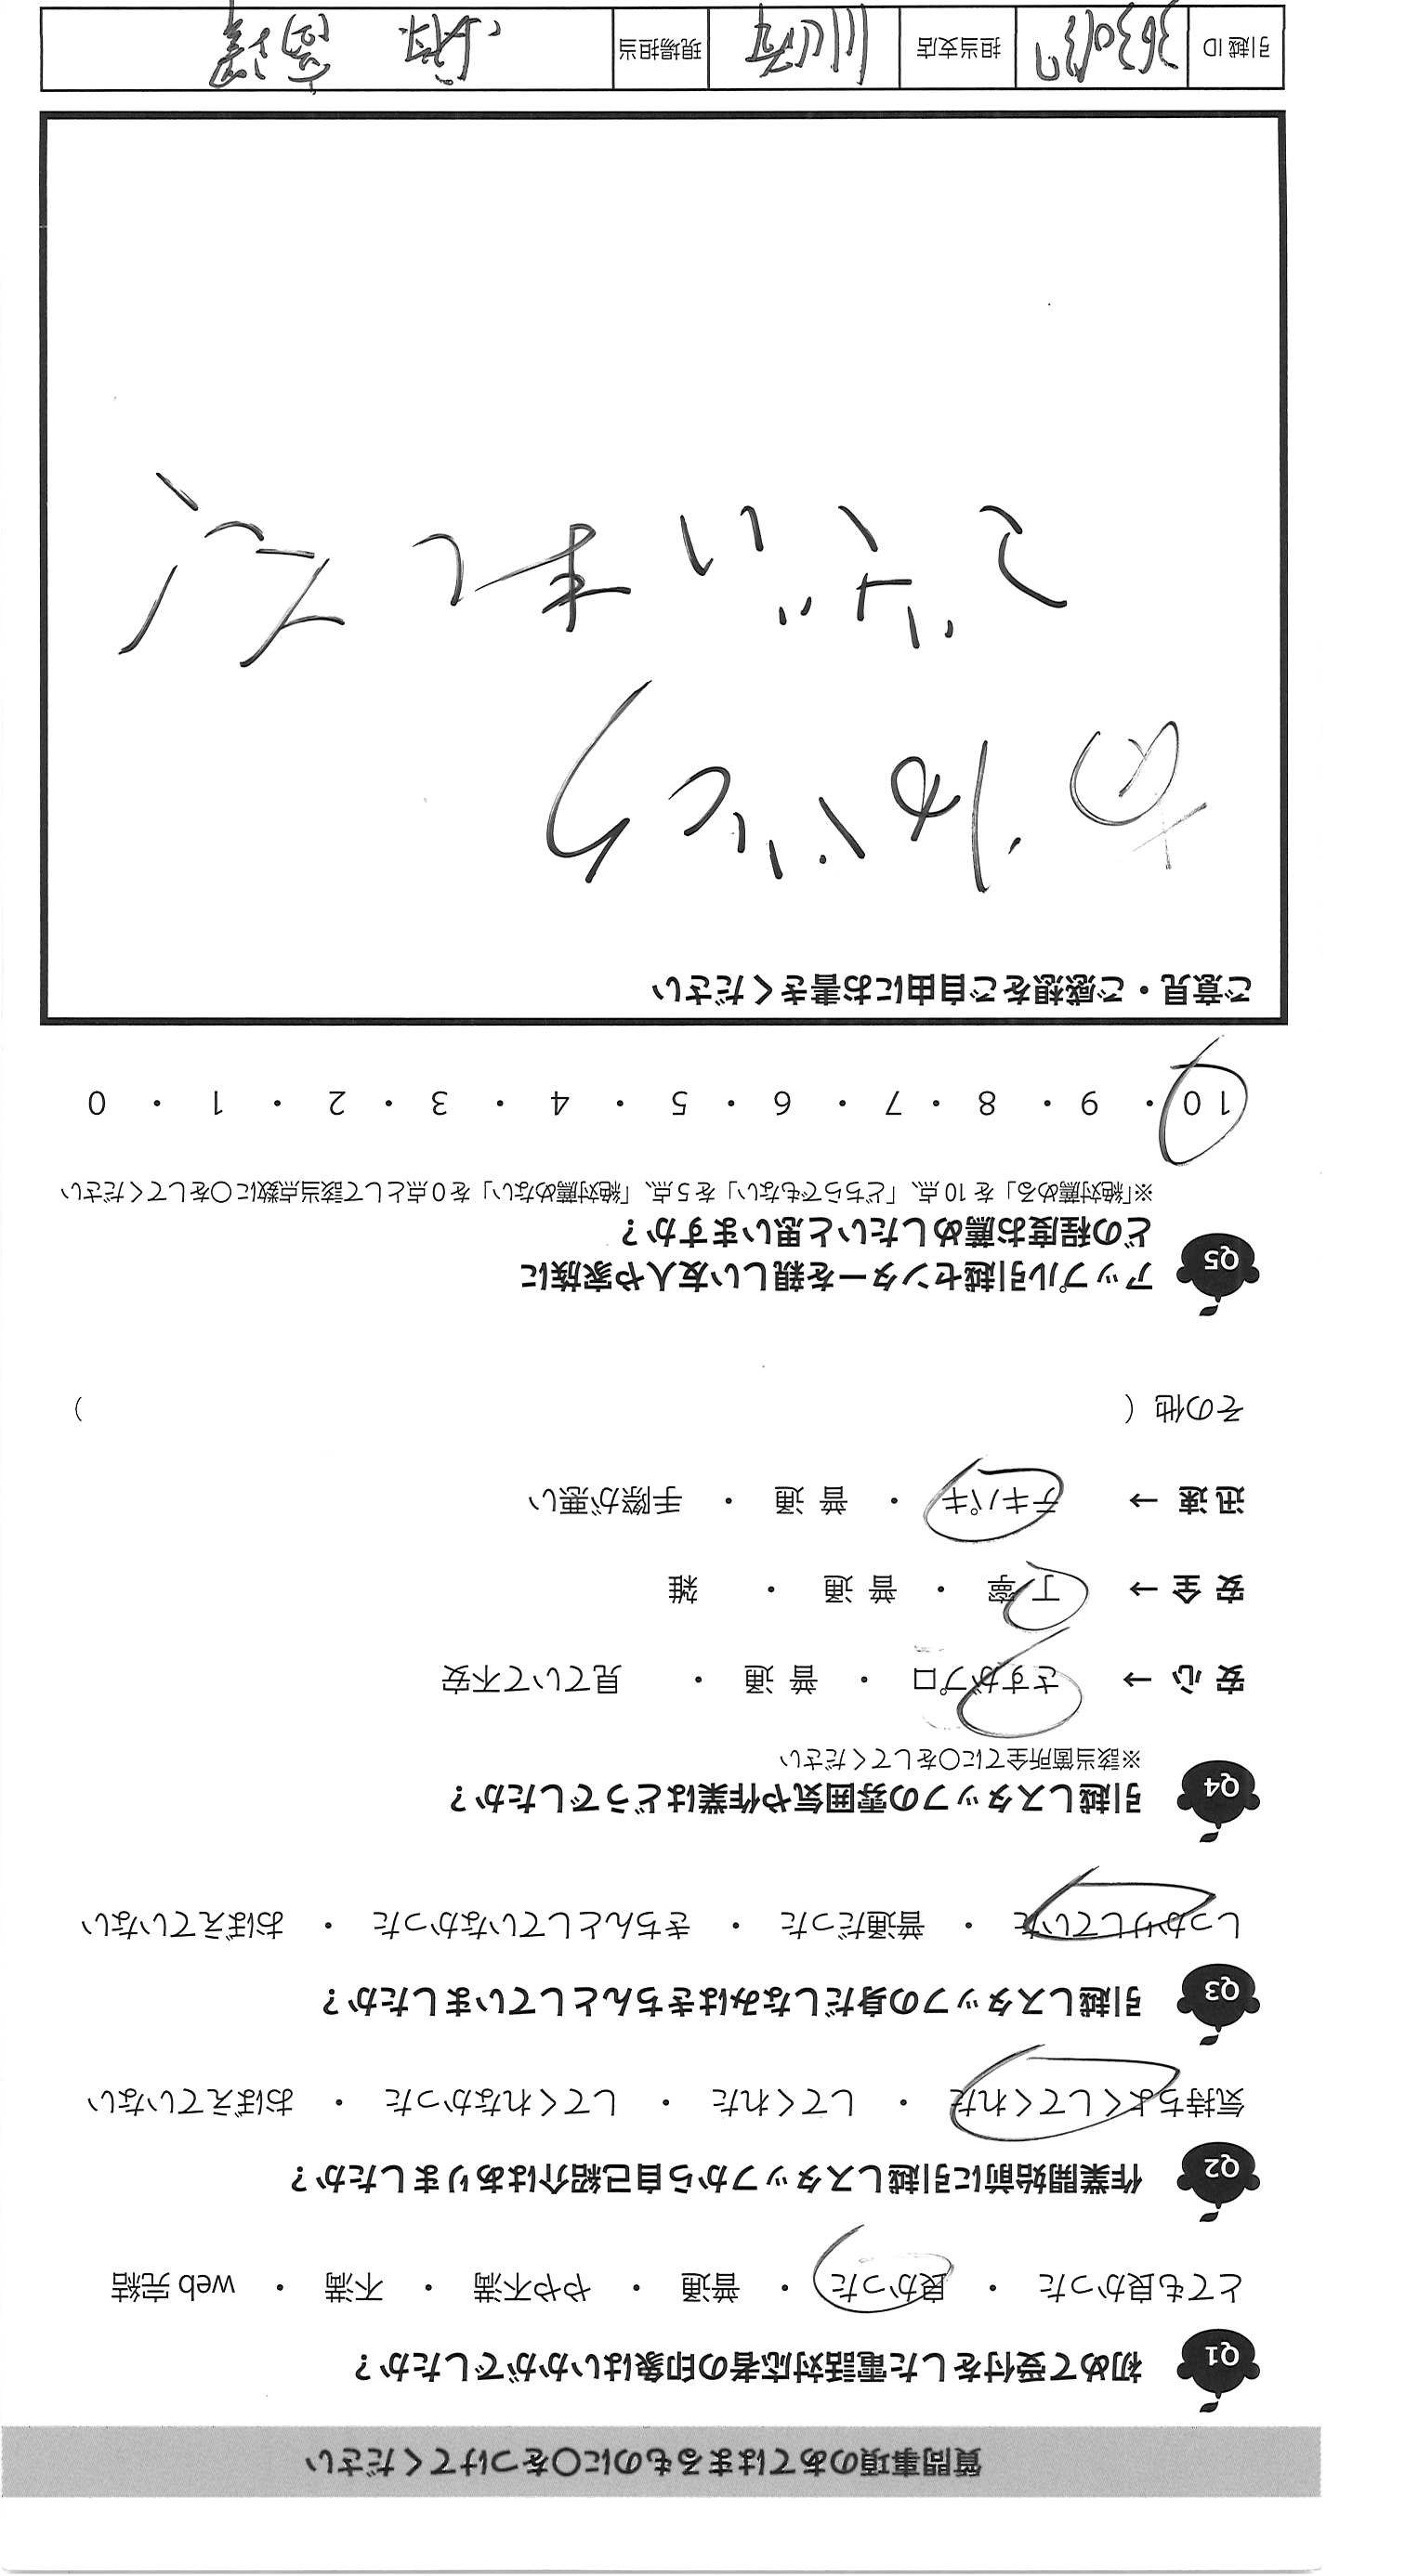 質問事項のあてはまるものに〇をつけてください
Q1 初めて受付をした電話対応者の印象はいかがでしたか？
とても良かった ・ 良かった ・ 普通 ・ やや不満 ・ 不満 ・ web 完結
Q2 作業開始前に引越しスタッフから自己紹介はありましたか？
気持ちよくしてくれた ・ してくれた ・ してくれなかった ・ おぼえていない
Q3 引越しスタッフの身だしなみはきちんとしていましたか？
しっかりしていた ・ 普通だった ・ きちんとしていなかった ・ おぼえていない
Q4 引越しスタッフの雰囲気や作業はどうでしたか？
※該当箇所全てに〇をしてください
安 心 → さすがプロ ・ 普 通 ・ 見ていて不安
安 全 → 丁 寧 ・ 普 通 ・ 雑
迅 速 → テキパキ ・ 普 通 ・ 手際が悪い
その他（ ）
Q5 アップル引越センターを親しい友人や家族に
どの程度お薦めしたいと思いますか？
※「絶対薦める」を 10 点、「どちらでもない」を 5 点、「絶対薦めない」を 0 点として該当点数に〇をしてください
10 ・ 9 ・ 8 ・ 7 ・ 6 ・ 5 ・ 4 ・ 3 ・ 2 ・ 1 ・ 0
ご意見・ご感想をご自由にお書きください
ありがとう
ございました
引越 ID 担当支店 現場担当